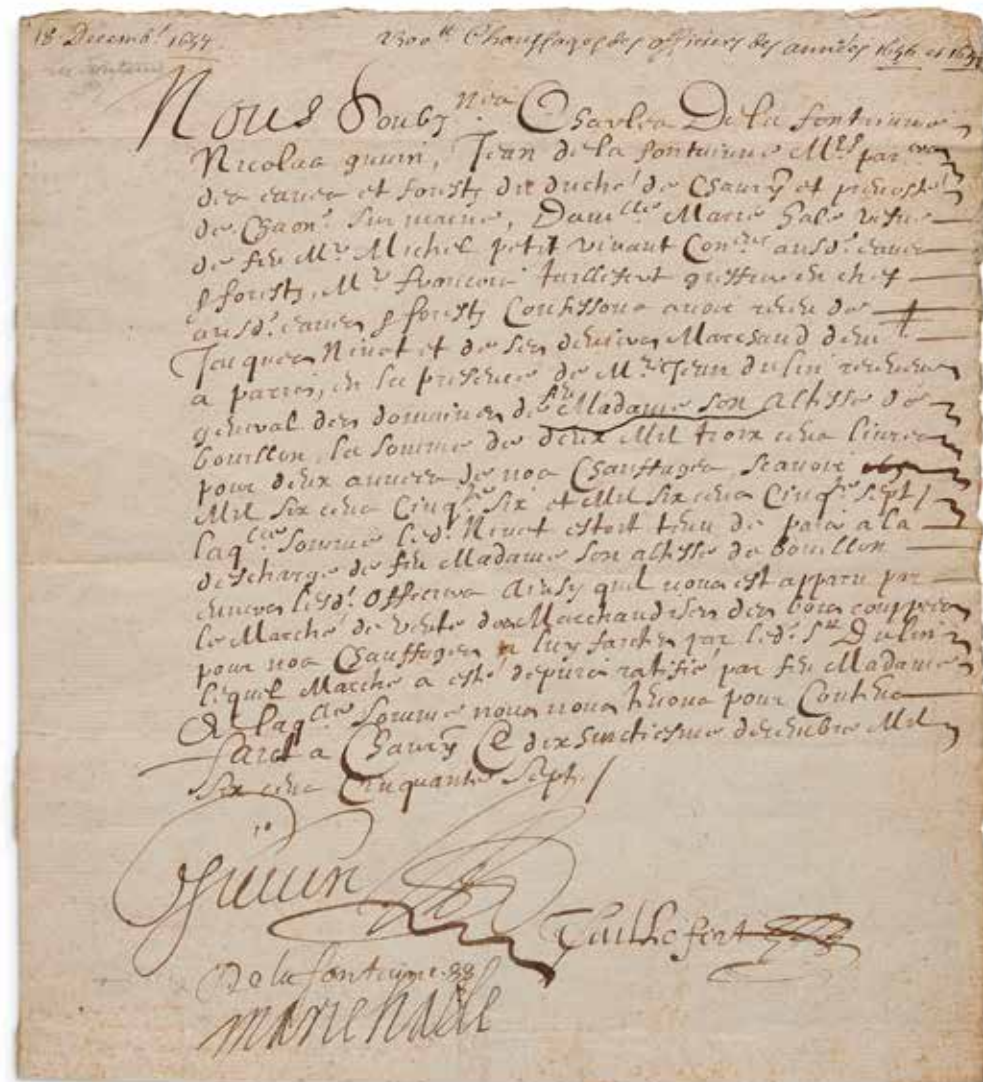 18 Decemb.^e 1657
2300^tt Chauffages des officiers des années 1656 et 1657
Nous Soubz^nez Charles De la fontaine
Nicolas guvin, Jean de la fontaine M^rs par^ers
des eaues et forestz du duché de Chaury et prevosté
de Chaon^e sur marne, Dam^lle Marie hale vefve
de feu M^e Michel petit vivant Con^er ausd^s eaues
& forestz, M^e francois taillefert greffier en chef
ausd^s eaues & forestz Confessons avoir receu de
Jacques Ninot et de ses deniers Marchand dem^t
a parris, en la presence de M^e Jean dulin recepveur
general des domaines de feue Madame Son Altesse de
bouillon, la Somme de deux Mil trois cens livres
pour deux annees de nos Chauffages, scavoir
Mil six cens Cinq^te Six et Mil six cens Cinq^te Sept /
laq^lle Somme led^t Ninot estoit tenu de paier a la
descharge de feu Madame Son altesse de Bouillon
envers lesd^s Officiers Ainsy quil nous est apparu par
le Marché de vente des Marchandises des bois couppees
pour nos Chauffages a luy faicte par led^t S^r Dulin
lequel Marché a esté depuis ratifié par feu Madame
De laq^lle Somme nous nous tenons pour Contens
faict a Chaury Ce dix huictiesme decembre Mil
Six cens Cinquante Sept /
Guvin
Taillefert
De la fontaine
marie halle